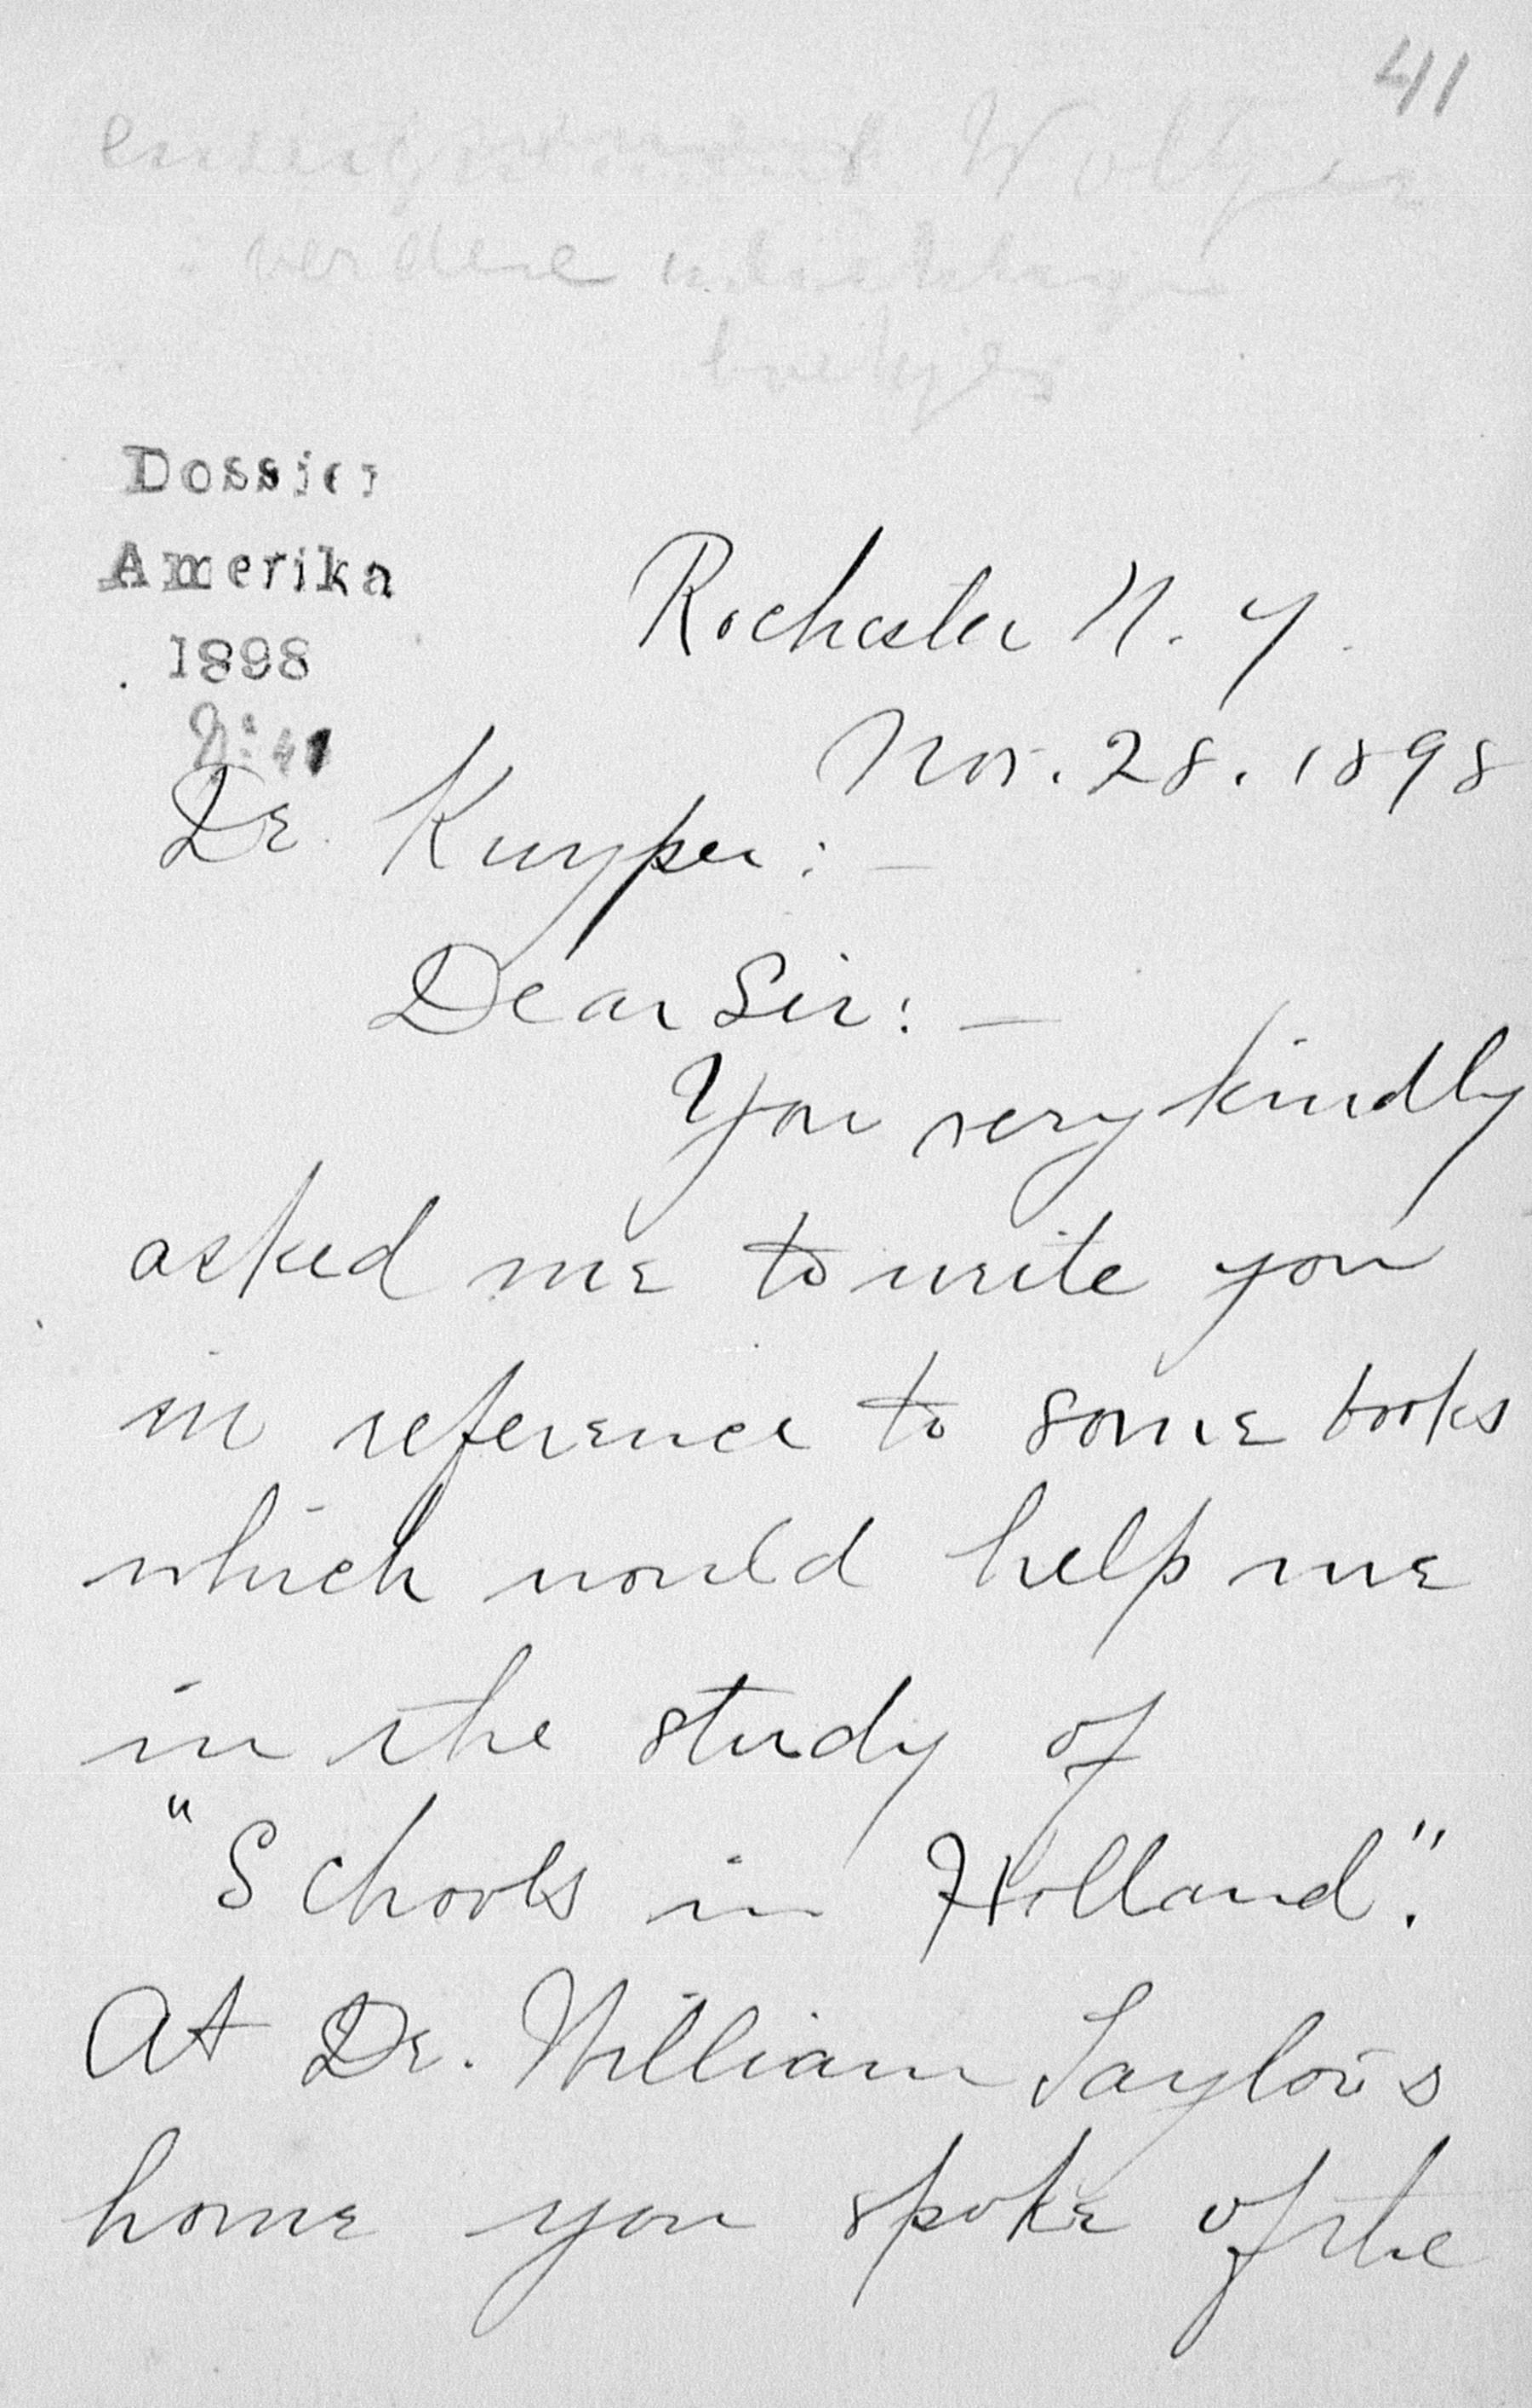 41
Woltjer
verdere
boekjes
Dossier
Amerika
1898
N: 41
Rochester N. Y.
Nov. 28. 1898
Dr. Kuyper: –
Dear Sir: –
You very kindly
asked me to write you
in reference to some books
which would help me
in the study of
"Schools in Holland."
At Dr. William Taylor's
home you spoke of the